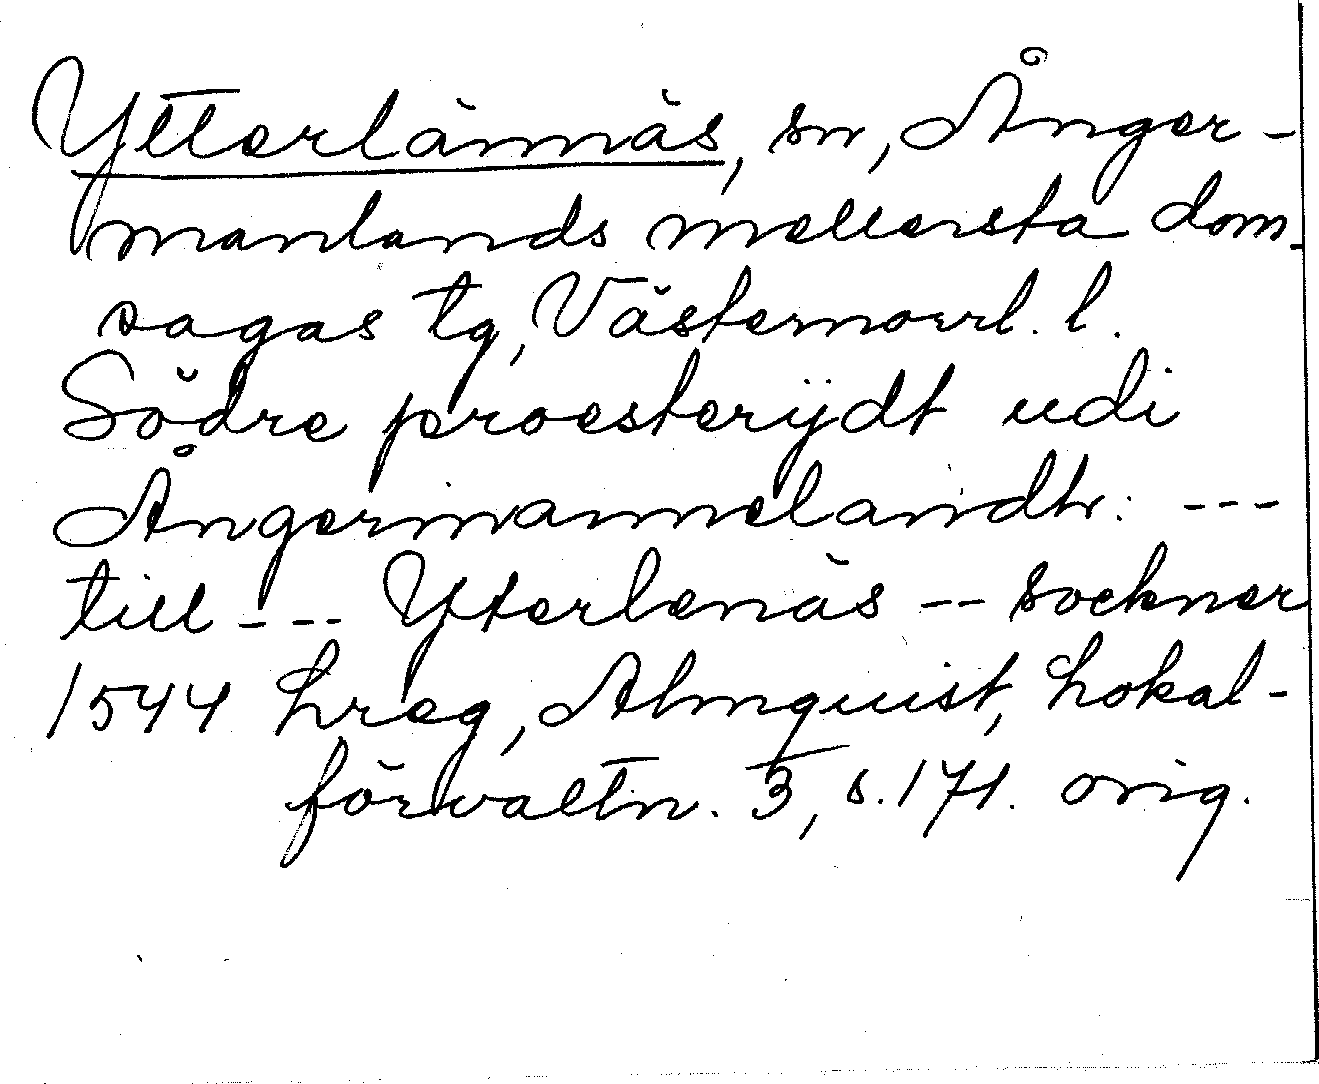 Ytterlännäs, sn, Ånger-
manlands mellersta dom-
sagas tg, Västernorrl. l.
Södre proesterijdt udi
Ångermannelandh: ---
till --- Yterlenäs -- sockner
1544 hreg, Almquist, Lokal-
förvaltn. 3, s. 171. orig.